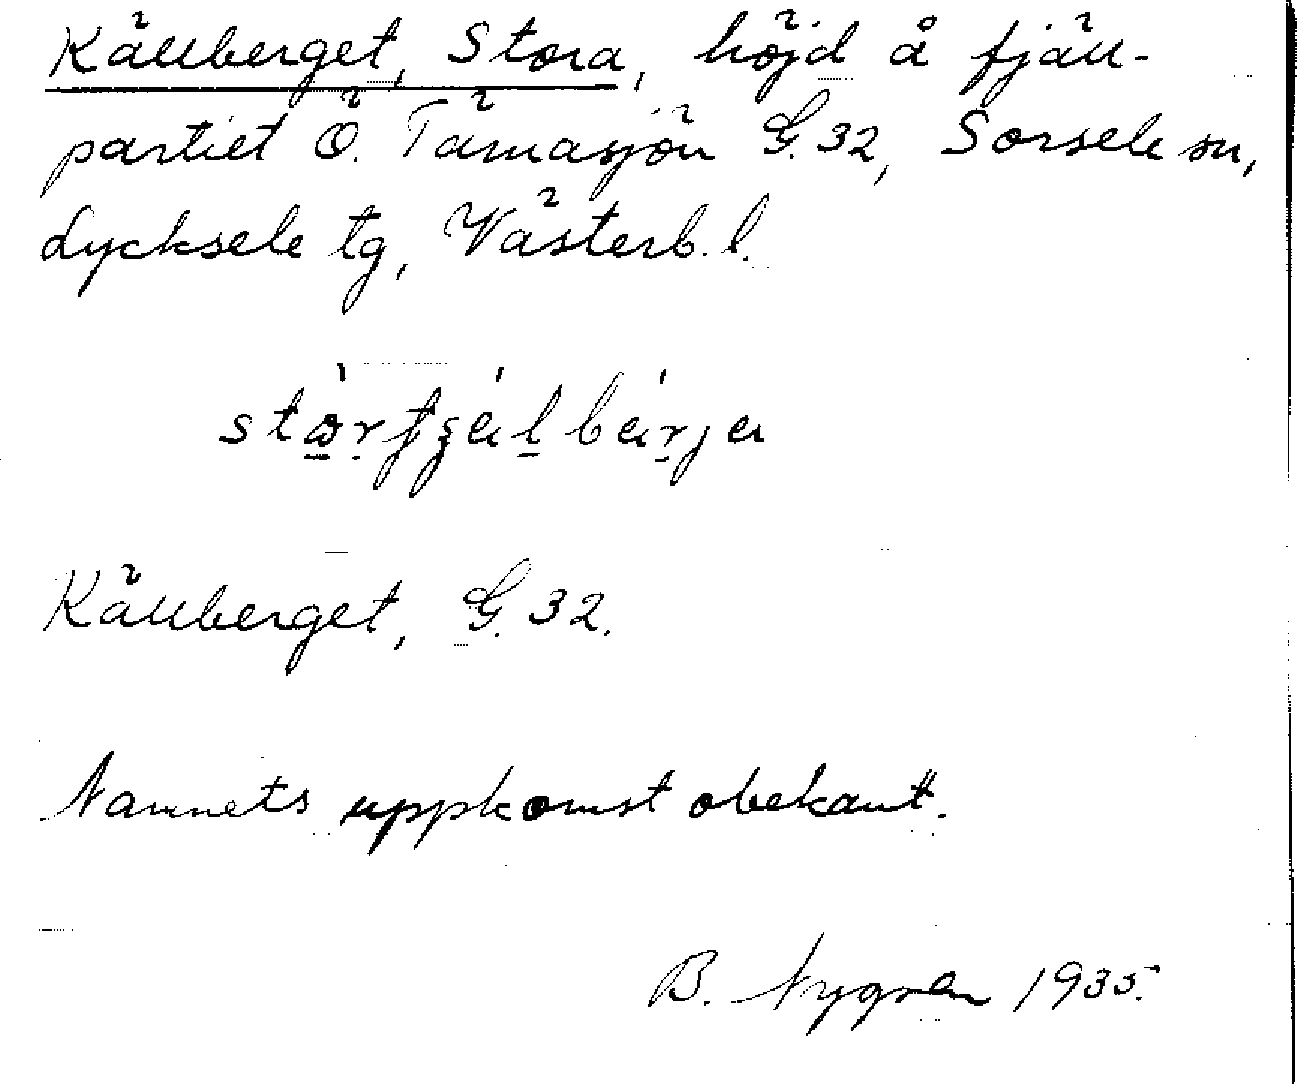 Källberget, Stora, höjd å fjäll-
partiet Ö. Tärnasjön G. 32, Sorsele sn,
Lycksele tg, Västerb. l.
Källberget, G. 32.
Namnets uppkomst obekant.
B. Nygren 1935.